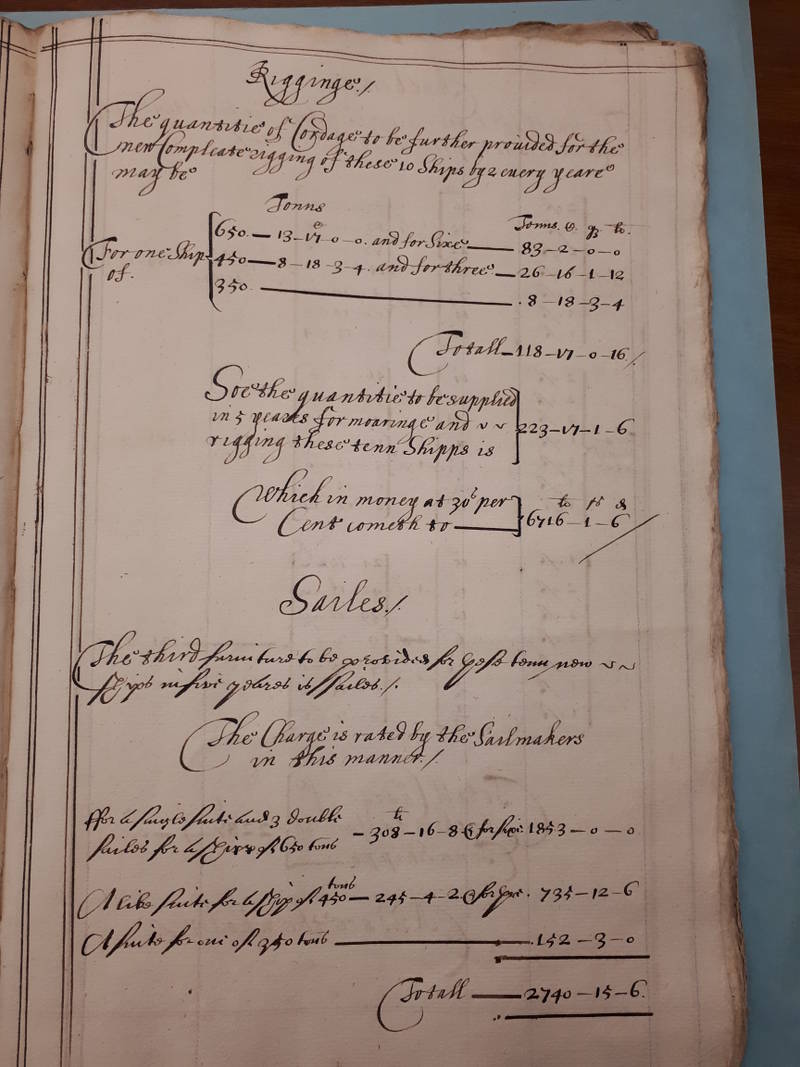 Rigginge./
The quantitie of Cordage to be further provided for the
new Compleate rigging of these 10 Ships by 2 every yeare
may be
Tonns
Tonns. C. qr lb.
650 — 13-17-0-0. and for Sixe — 83-2-0-0
For one Ship 450 — 8-18-3-4. and for three — 26-16-1-12
of.
350 — 8-18-3-4
Totall — 118-17-0-16/
Soe the quantitie to be supplied
in 5 yeares for moaringe and ~ ~ 223-17-1-6
rigging these tenn Shipps is
Which in money at 30s per li s d
Cent cometh to — 6716-1-6
Sailes./
The third furniture to be provided for these tenn new ~ ~
ships in five yeares is Sailes./.
The Charge is rated by the Sailmakers
in this manner./
ffor a single suite and 3 double li
sailes for a shipp of 650 tons - 308-16-8 & for sixe 1853-0-0
A like suite for a ship of 450 tons — 245-4-2 & for three . 735-12-6
A suite for one of 350 tons — .152-3-0
Totall — 2740-15-6.